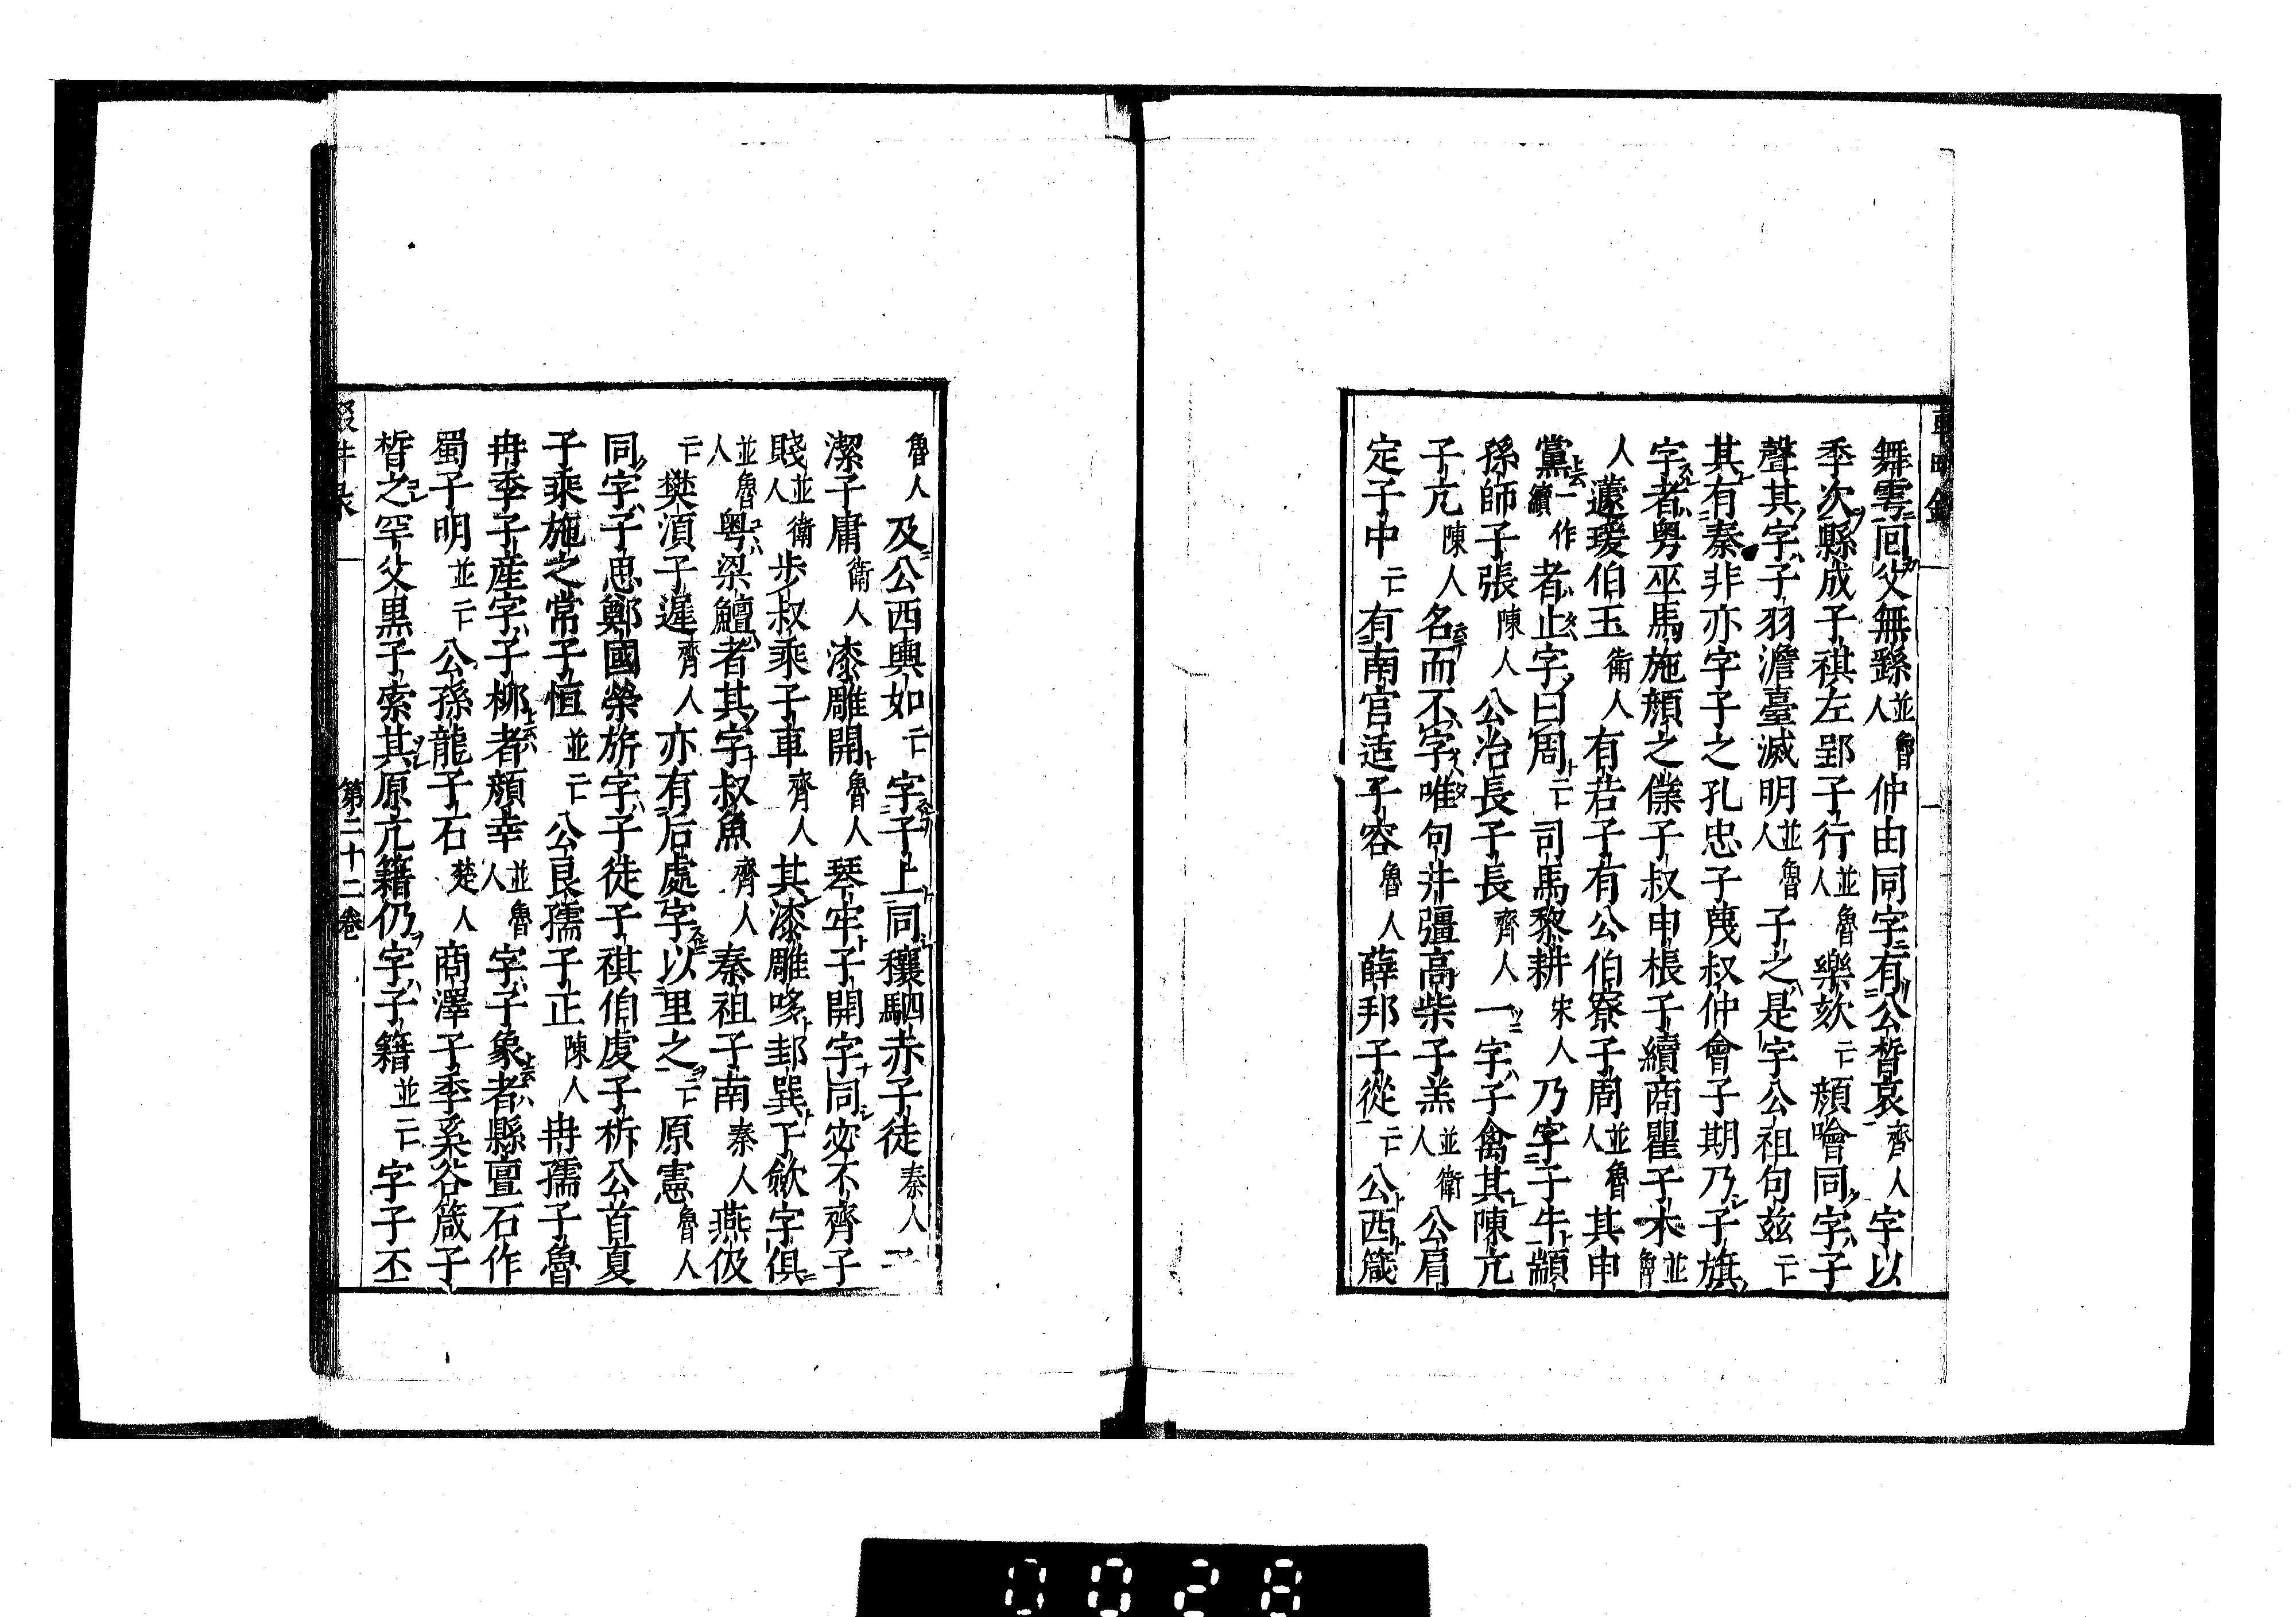 舞雩同父無繇並魯人仲由同字有公晳哀齊人字以
季次縣成子祺左郢子行並魯人樂欬亡顔噲同字子
聲其字子羽澹臺滅明並魯人子之是字公祖句茲亡
其有秦非亦字子之孔忠子蔑叔仲會子期乃子旗
字者粤巫馬施顔之僕子叔申棖子續商瞿子木並魯
人蘧瑗伯玉衛人有若子有公伯寮子周並魯人其申
黨一作續者止字曰周亡司馬黎耕宋人乃字子牛顓
孫師子張陳人公冶長子長齊人一字子禽其陳亢
子亢陳人名而不字唯句井疆高柴子羔並衛人公肩
定子中亡有南宮适子容魯人薛邦子從亡公西箴
魯人及公西輿如亡字子上同穰駟赤子徒秦人
潔子庸衛人漆雕開魯人琴牢子開字同宓不齊子
賤並魯人步叔乘子車齊人其漆雕哆邽巽子斂字俱
並魯人粤梁鱣者其字叔魚齊人秦祖子南秦人燕伋
亡樊須子遲齊人亦有后處字以里之亡原憲魯人
同字子思鄭國榮旂字子徒子祺伯虔子析公首夏
子乘施之常子恒並亡公良孺子正陳人冉孺子魯
冉季子産字子柳者顔幸並魯人字子象者縣亶石作
蜀子明並亡公孫龍子石楚人商澤子季奚谷箴子
晳之罕父黒子索其原亢籍仍字子籍並亡字子丕
第二十二卷
0028